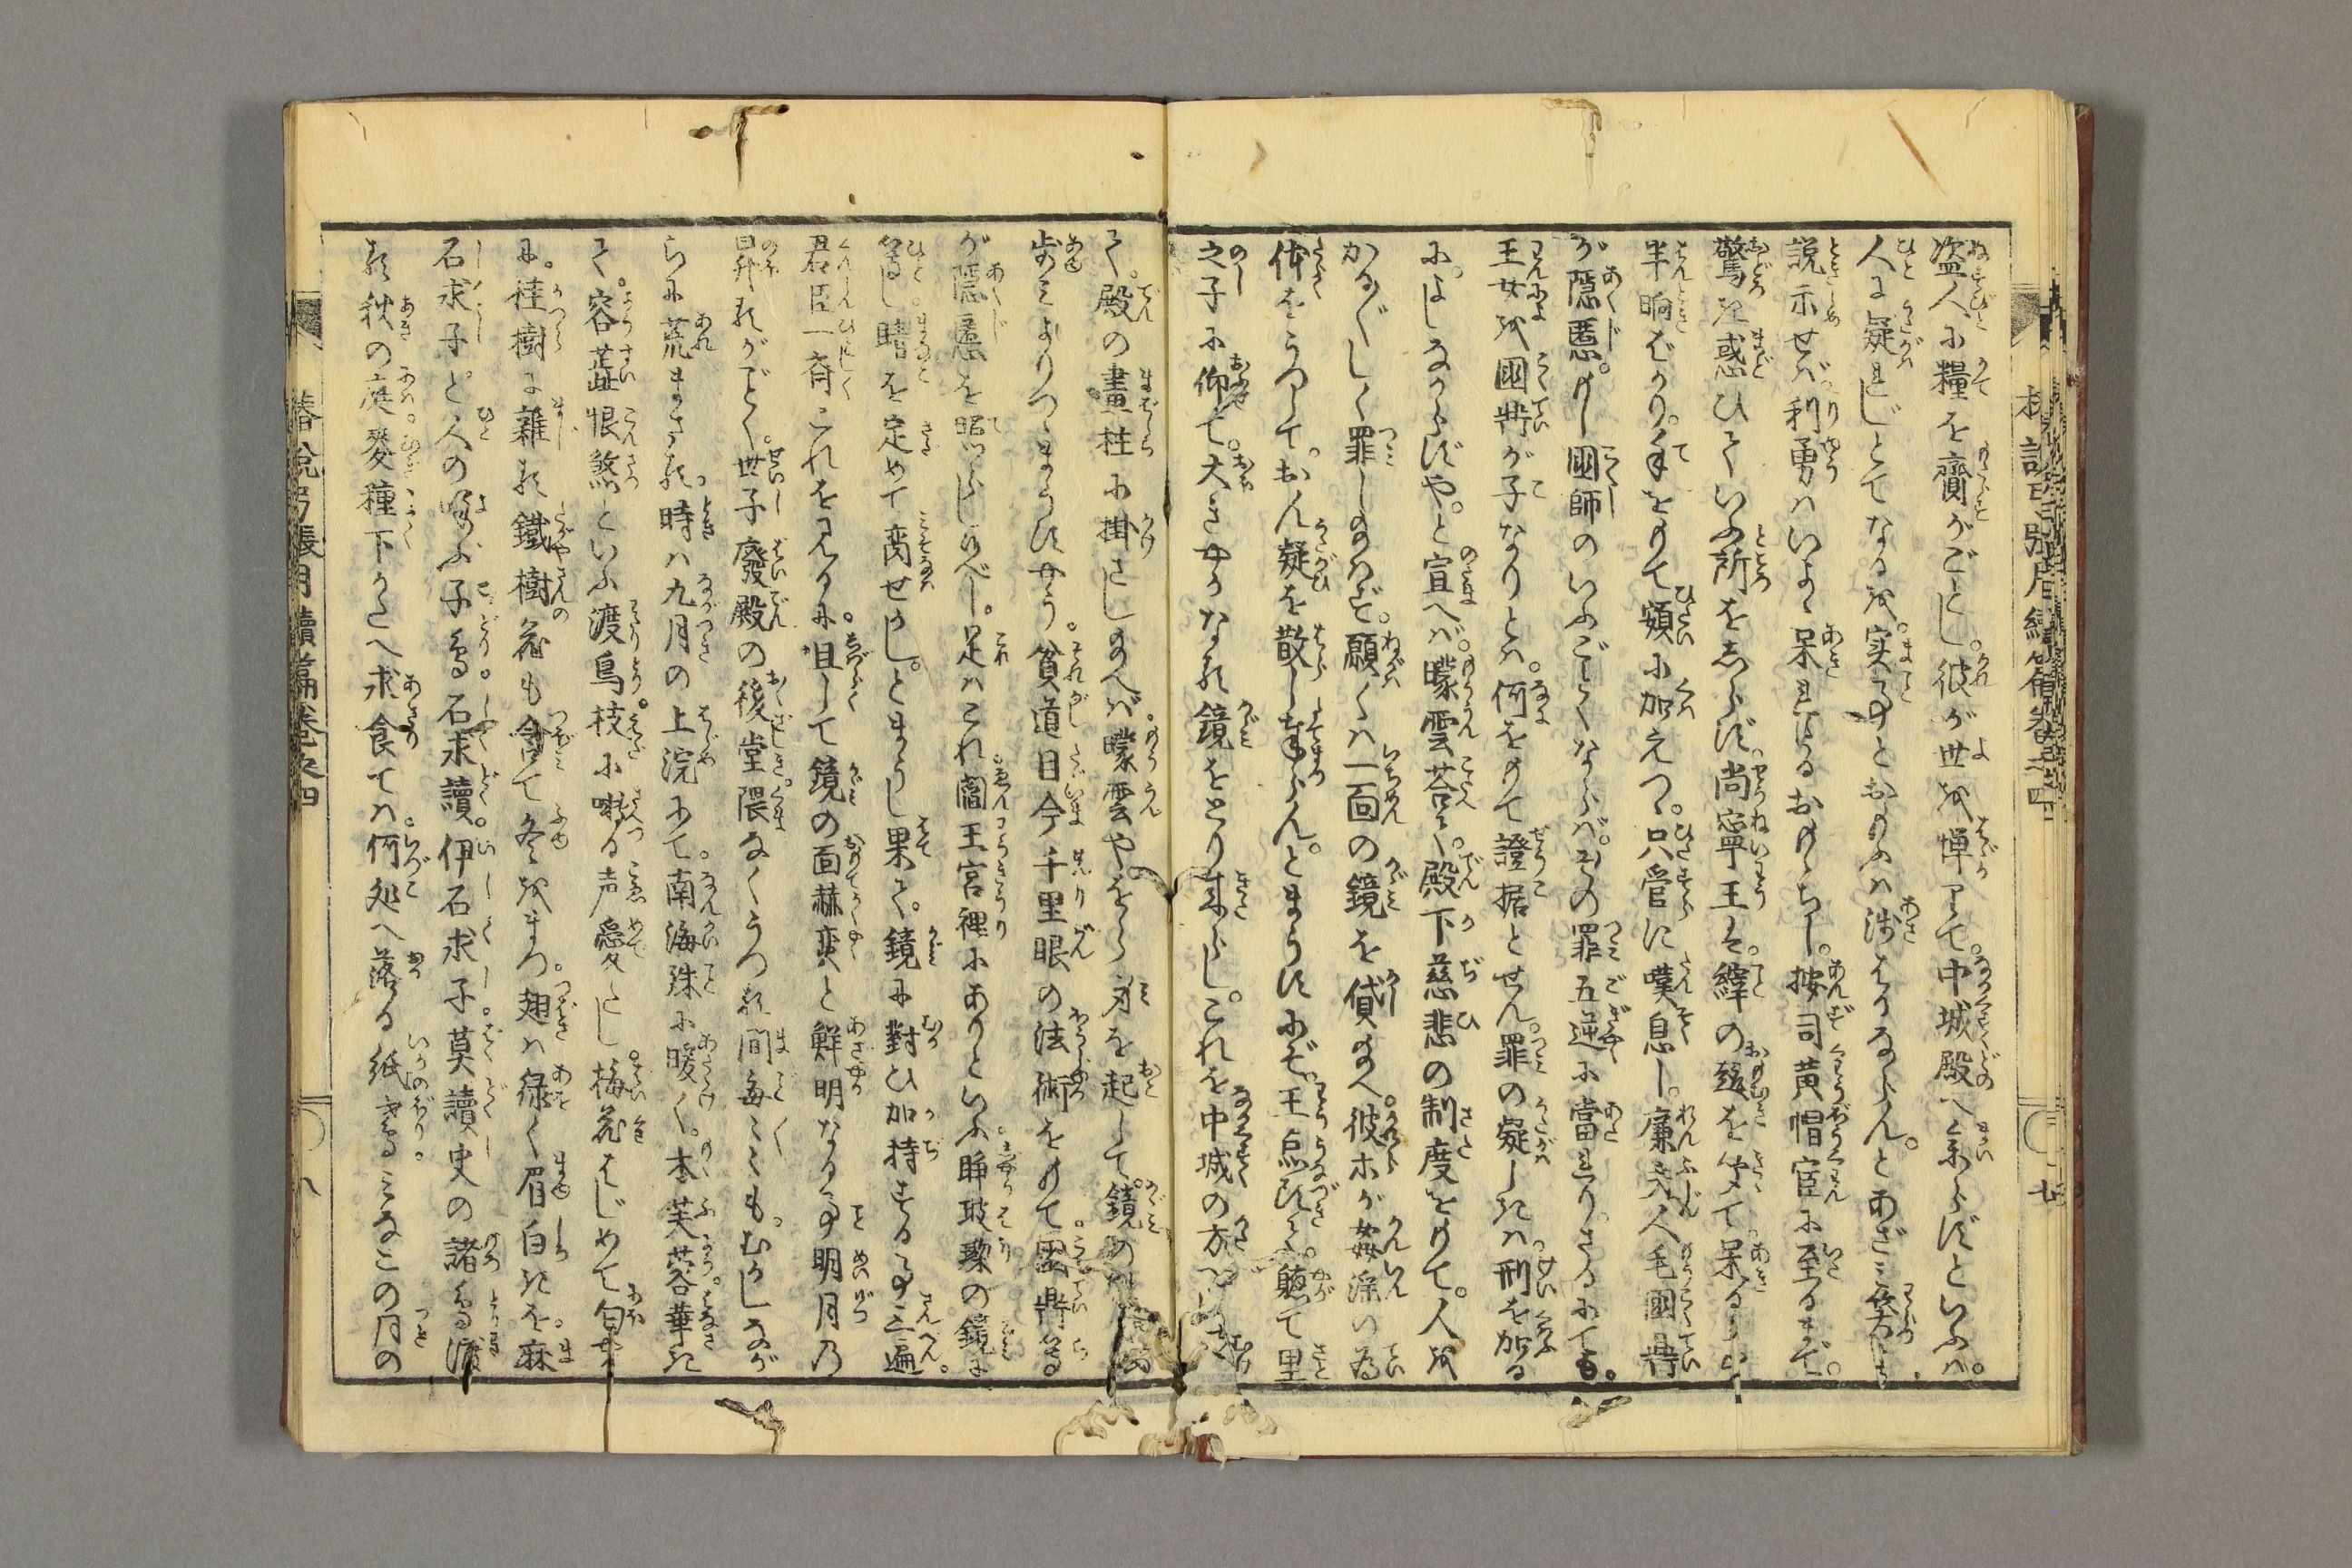 盗人に糧を齎がごとし。彼が世を憚りて。中城殿へ参らずといふは。
人に疑れじとてなるを。実事とおもふは浅はかならん。とあざみ笑ひ
説示せば。利勇はいよゝ呆れたるおもゝちし。按司黄帽官に至るまで。
驚き惑ひていふ所をしらず。尚寧王は。縡の趣を聞て。呆るゝ
半晌ばかり。手をもて額に加えつゝ。只管に嘆息し。廉夫人毛國鼎
が隠慝。もし國師のいふごとくならば。その罪五逆に當れり。さるにても。
王女を國鼎が子なりとは。何をもて證据とせん。罪の疑しきは。刑を加る
によしなからずや。と宣へば。曚雲荅て。殿下慈悲の制度をもて。人を
かろ〴〵しく罪し給はず。願くは一面の鏡を貸給へ。彼ホが姦淫の為
体をうつして。おん疑を散し奉らん。とまうすにぞ。王点頭て。聴て里
之子に仰て。大きやかなる鏡をとり来らし。これを中城の方へむ
て。殿の畫柱に掛さし給へば。曚雲やをら身を起して。鏡の
歩みよりつゝまうすやう。貧道目今千里眼の法術をもて。國鼎等
が隠慝を照らしまうすべし。是はこれ閻王宮裡にありといふ浄玻瓈の鏡に
等し。晴を定めて齋せかし。とまうし果て。鏡に對ひ加持する事三遍
君臣一齊これを見るに。且して鏡の面赫奕と鮮明なる事明月乃
昇るがごとく。世子廢殿の後堂隈なくうつる間毎〻〻も。むかしなが
らに荒まさる。時は九月の上浣にて。南海殊に暖く。木芙蓉華さき
て。容蕋恨煞といふ渡鳥。枝に囀る声愛たし。梅花はじめて匂やか
に。桂樹に雜る鐵樹花も含て冬をまつ。翅は緑く眉白きを。麻
石求子。と人の喚ぶ子鳥。石求讀。伊石求子莫讀史の諸鳥渡
る秋の庭。麥種下かたへ求食ては。何処へ落る紙鳶。みなこの月の
椿説弓張月續篇卷之四
八